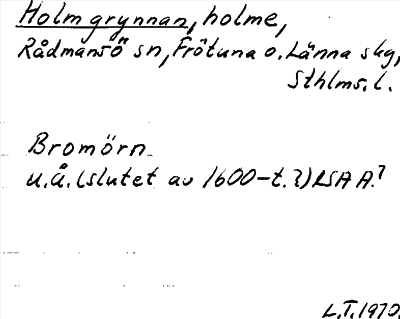 Holmgrynnan, holme,
Rådmansö sn, Frötuna o. Länna skg,
Sthlms. l.
Bromörn
u.å. (slutet av 1600-t.?) LSA A?
L.T. 1970.